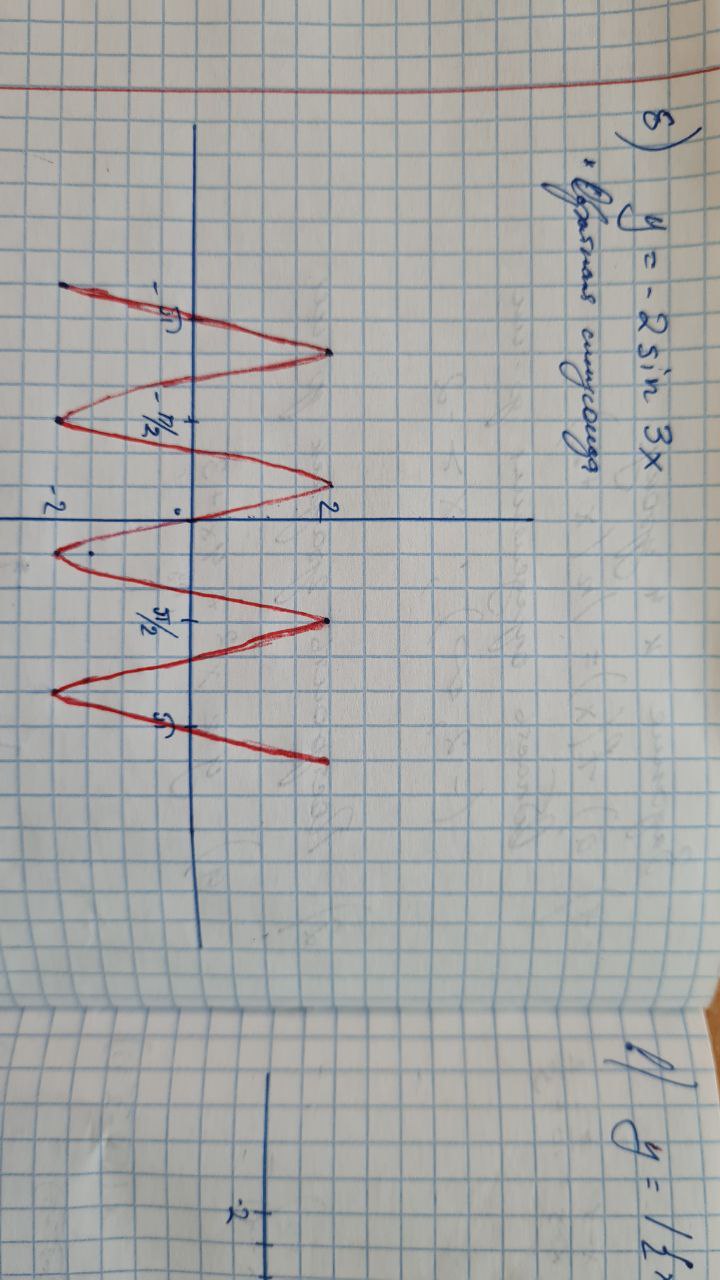 б) y = -2 sin 3x
* Обратная синусоида
2
-π
-π/2
0
π/2
π
-2
в) y = |{x
-2